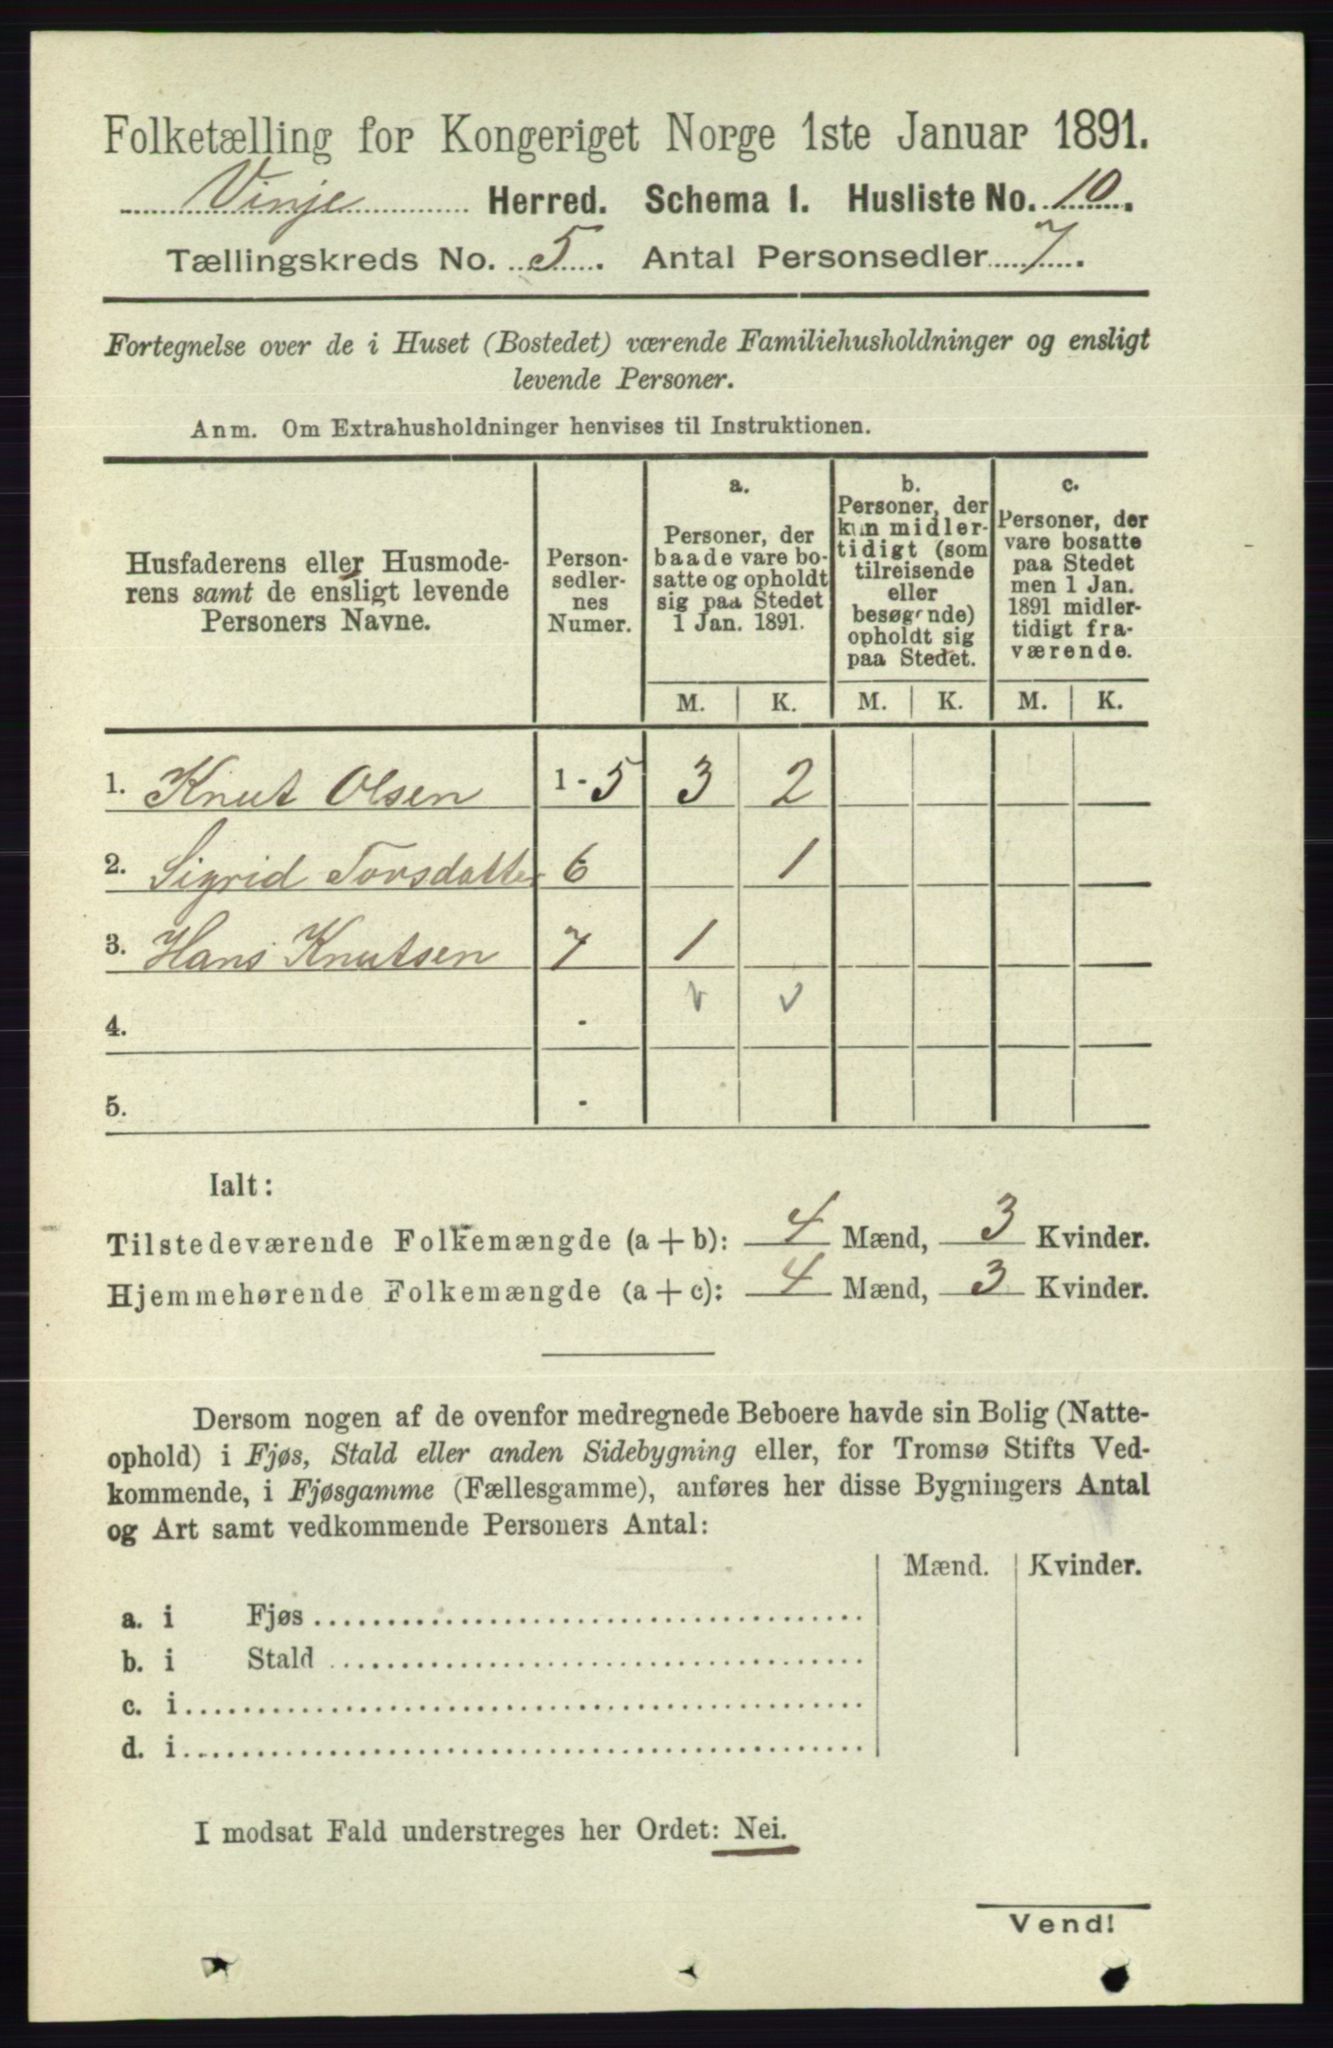 Folketælling for Kongeriget Norge 1ste Januar 1891.
Vinje Herred. Schema I. Husliste No. 10.
Tællingskreds No. 5. Antal Personsedler 7.
Fortegnelse over de i Huset (Bostedet) værende Familiehusholdninger og ensligt
levende Personer.
Anm. Om Extrahusholdninger henvises til Instruktionen.
Husfaderens eller Husmode-
rens samt de ensligt levende
Personers Navne.
Person-
sedler-
nes
Numer.
a.
Personer, der
baade vare bo-
satte og opholdt
sig paa Stedet
1 Jan. 1891.
b.
Personer, der
kun midler-
tidigt (som
tilreisende
eller
besøgende)
opholdt sig
paa Stedet.
c.
Personer, der
vare bosatte
paa Stedet
men 1 Jan.
1891 midler-
tidigt fra-
værende.
M. K. M. K. M. K.
1. Knut Olsen 1-5 3 2
2. Sigrid Torsdatter 6 1
3. Hans Knutsen 7 1
4. -
5. -
Ialt:
Tilstedeværende Folkemængde (a + b): 4 Mænd, 3 Kvinder.
Hjemmehørende Folkemængde (a + c): 4 Mænd, 3 Kvinder.
Dersom nogen af de ovenfor medregnede Beboere havde sin Bolig (Natte-
ophold) i Fjøs, Stald eller anden Sidebygning eller, for Tromsø Stifts Ved-
kommende, i Fjøsgamme (Fællesgamme), anføres her disse Bygningers Antal
og Art samt vedkommende Personers Antal:
Mænd. Kvinder.
a. i Fjøs
b. i Stald
c. i
d. i
I modsat Fald understreges her Ordet: Nei.
Vend!